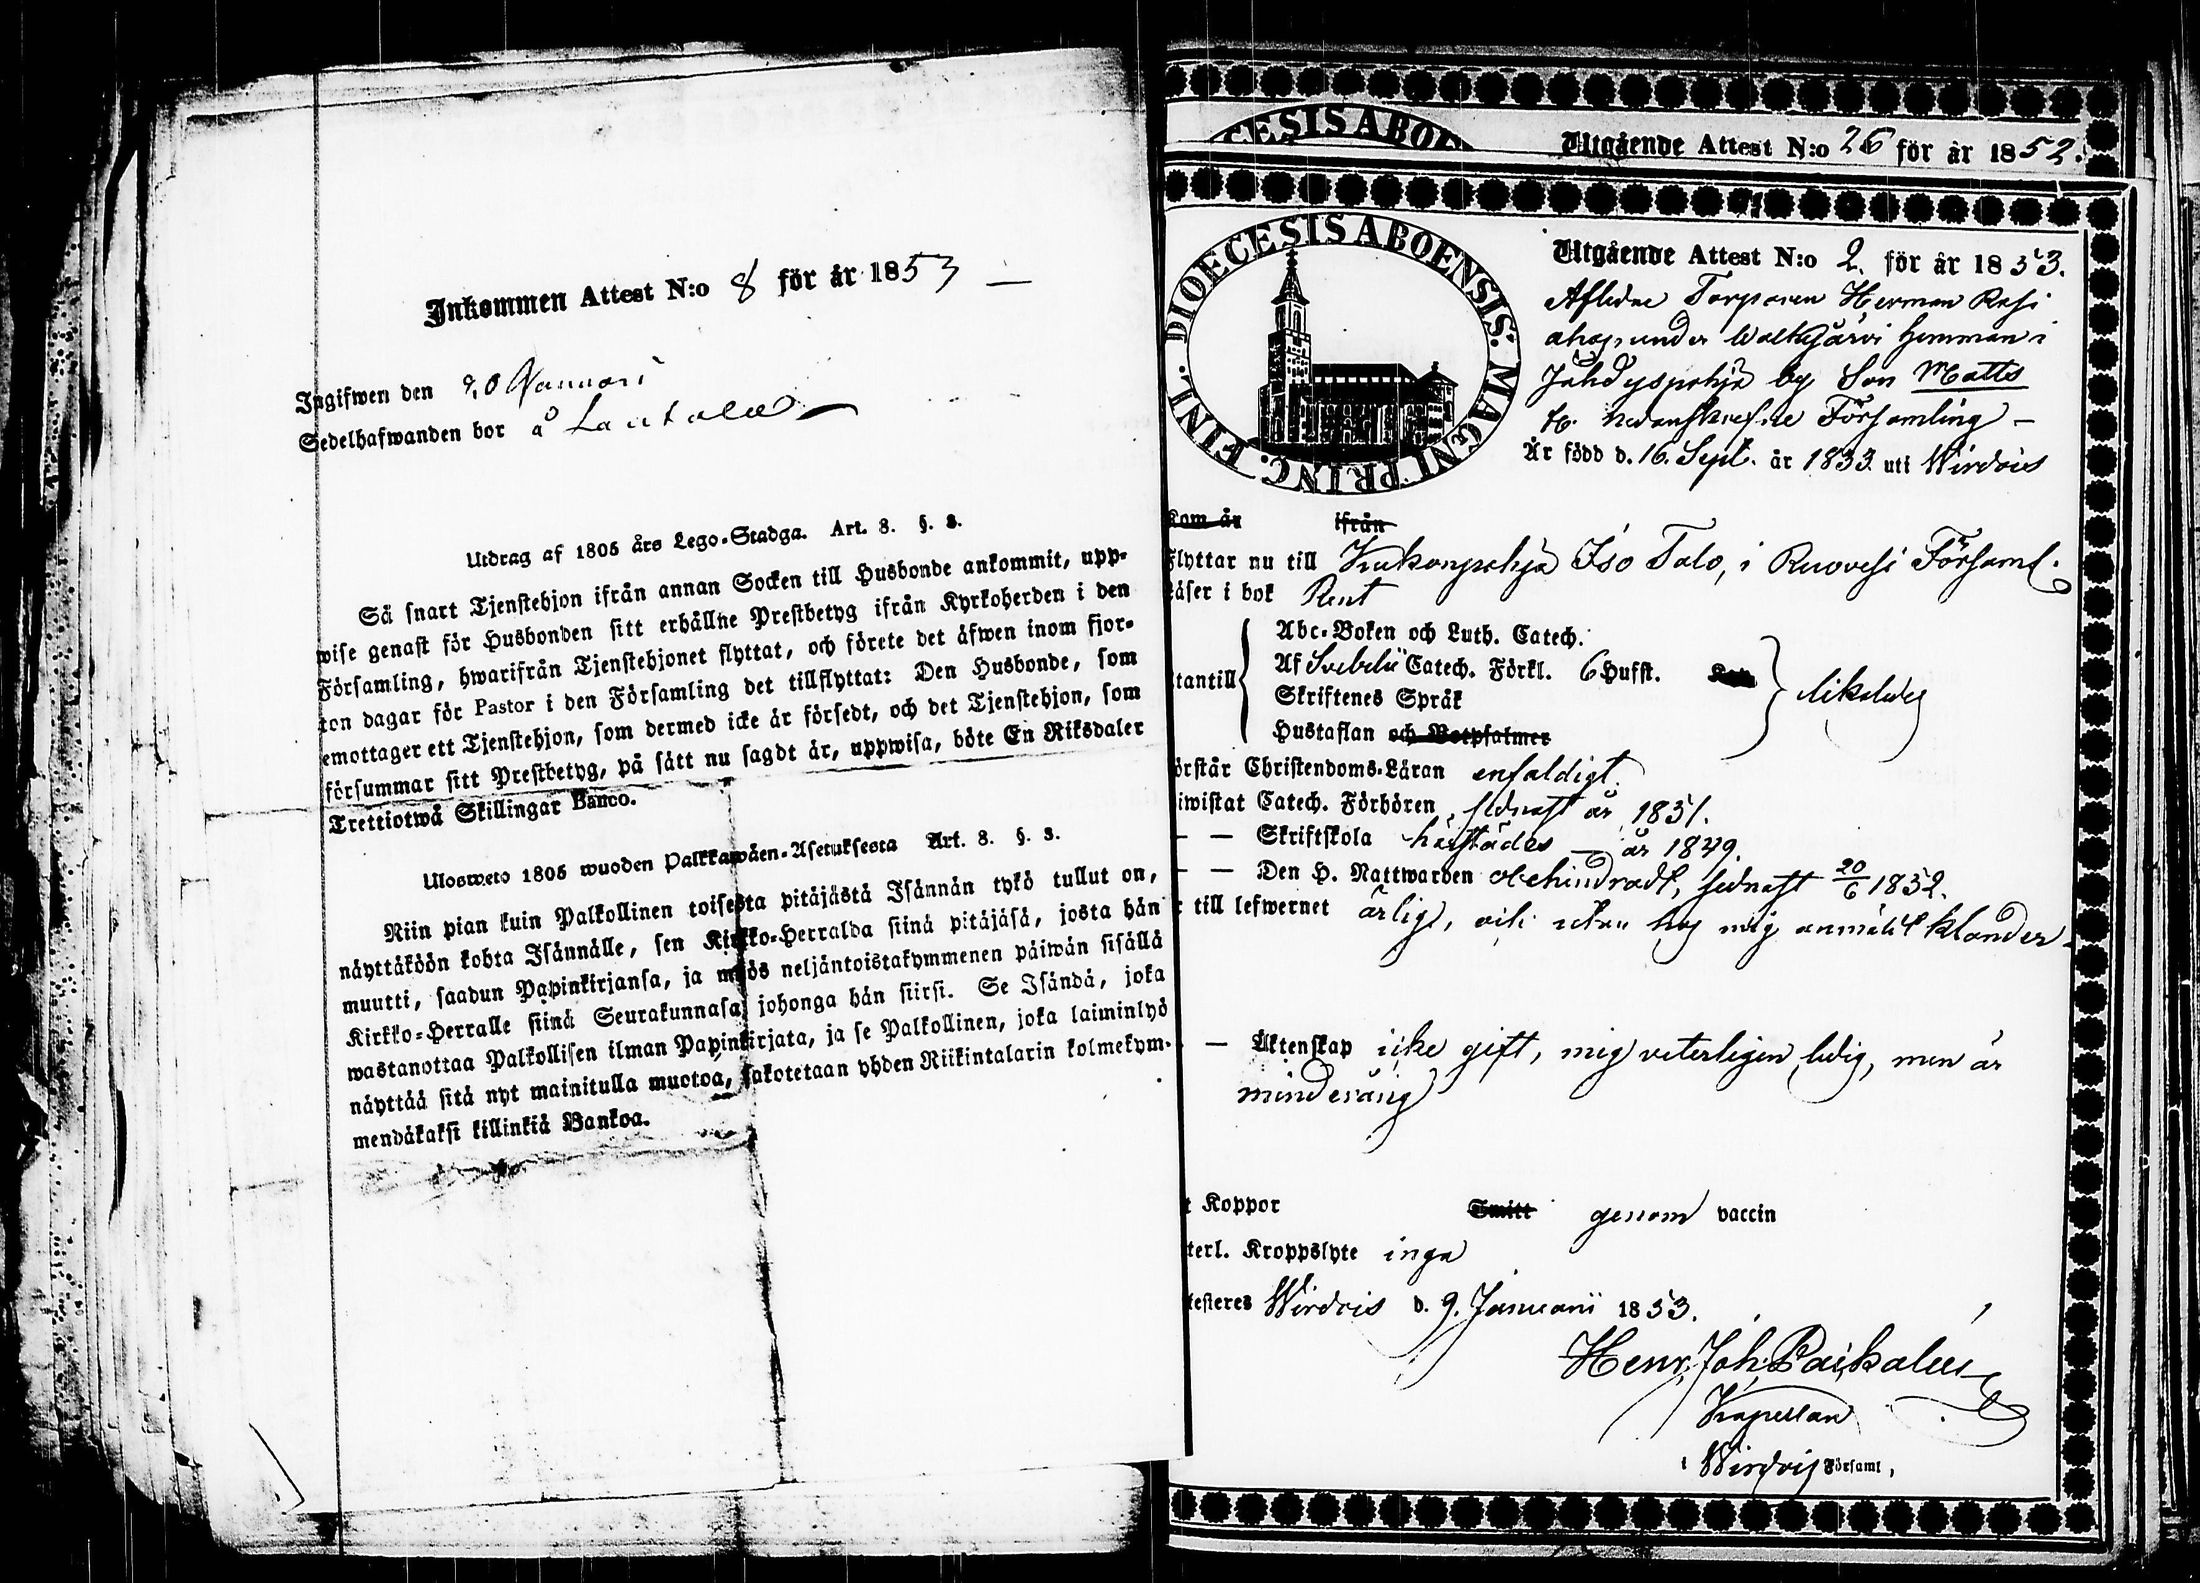 Inkommen Attest N:o 8 för år 1853
Ingifwen den 20 Januari
Sedelhafwanden bor å Lautala
Utdrag af 1805 års Lego-Stadga. Art. 8. §. 3.
Så snart Tjenstehjon ifrån annan Socken till Husbonde ankommit, upp-
wise genast för Husbonden sitt erhållne Prestbetyg ifrån Kyrkoherden i den
Församling, hwarifrån Tjenstehjonet flyttat, och förete det äfwen inom fjor-
ton dagar för Pastor i den Församling det tillflyttat: Den Husbonde, som
emottager ett Tjenstehjon, som dermed icke är försedt, och det Tjenstehjon, som
försummar sitt Prestbetyg, på sätt nu sagdt är, uppwisa, böte En Riksdaler
Trettiotwå Skillingar Banco.
Ulosweto 1805 wuoden Palkkawäen-Asetuksesta Art. 8. §. 3.
Niin pian kuin Palkollinen toisesta pitäjästä Isännän tykö tullut on,
näyttäköön kohta Isännälle, sen Kirkko-Herralda siinä pitäjäsä, josta hän
muutti, saadun Papinkirjansa, ja myös neljäntoistakymmenen päiwän sisällä
Kirkko-Herralle siinä Seurakunnasa, johonga hän siirsi. Se Isändä, joka
wastanottaa Palkollisen ilman Papinkirjata, ja se Palkollinen, joka laiminlyö
näyttää sitä nyt mainitulla muotoa, sakotetaan yhden Riikintalarin kolmekym-
mendäkaksi killinkiä Bankoa.
CESIS ABOE
Utgående Attest N:o 26 för år 1852.
FINL. DIOECESIS ABOENSIS. MAGNI PRINC.
Utgående Attest N:o 2. för år 1853.
Aflidne Torparen Herman Rasi
ahos, under Walkjärvi hemman i
Jähdyspohja by Son Matts
fr. nedanskrefne Församling
Är född d. 16. Sept. år 1833. uti Wirdois
Kom år ifrån
Flyttar nu till Kukonpohja Iso Talo, i Ruovesi Församl.
Läser i bok Rent
Abc-Boken och Luth. Catech.
Af Svebelii Catech. Förkl. 6 Hufst.
utantill Skriftenes Språk likaledes
Hustaflan och Botpsalmer
örstår Christendoms-Läran enfaldigt.
iwistat Catech. Förhören, sednast år 1851.
— — Skriftskola härstädes — år 1849.
— — Den H. Nattwarden obehindradt, sednast 20/6 1852.
till lefwernet ärlig, och utan hos mig anmäldt klander
— Äktenskap icke gift, mig veterligen ledig, men är
minderårig
Koppor Smitt genom vaccin
terl. Kroppslyte inga
testeres Wirdois d. 9. Januarii 1853.
Henr. Joh. Paikalén
Kapellan
i Wirdois Församl,